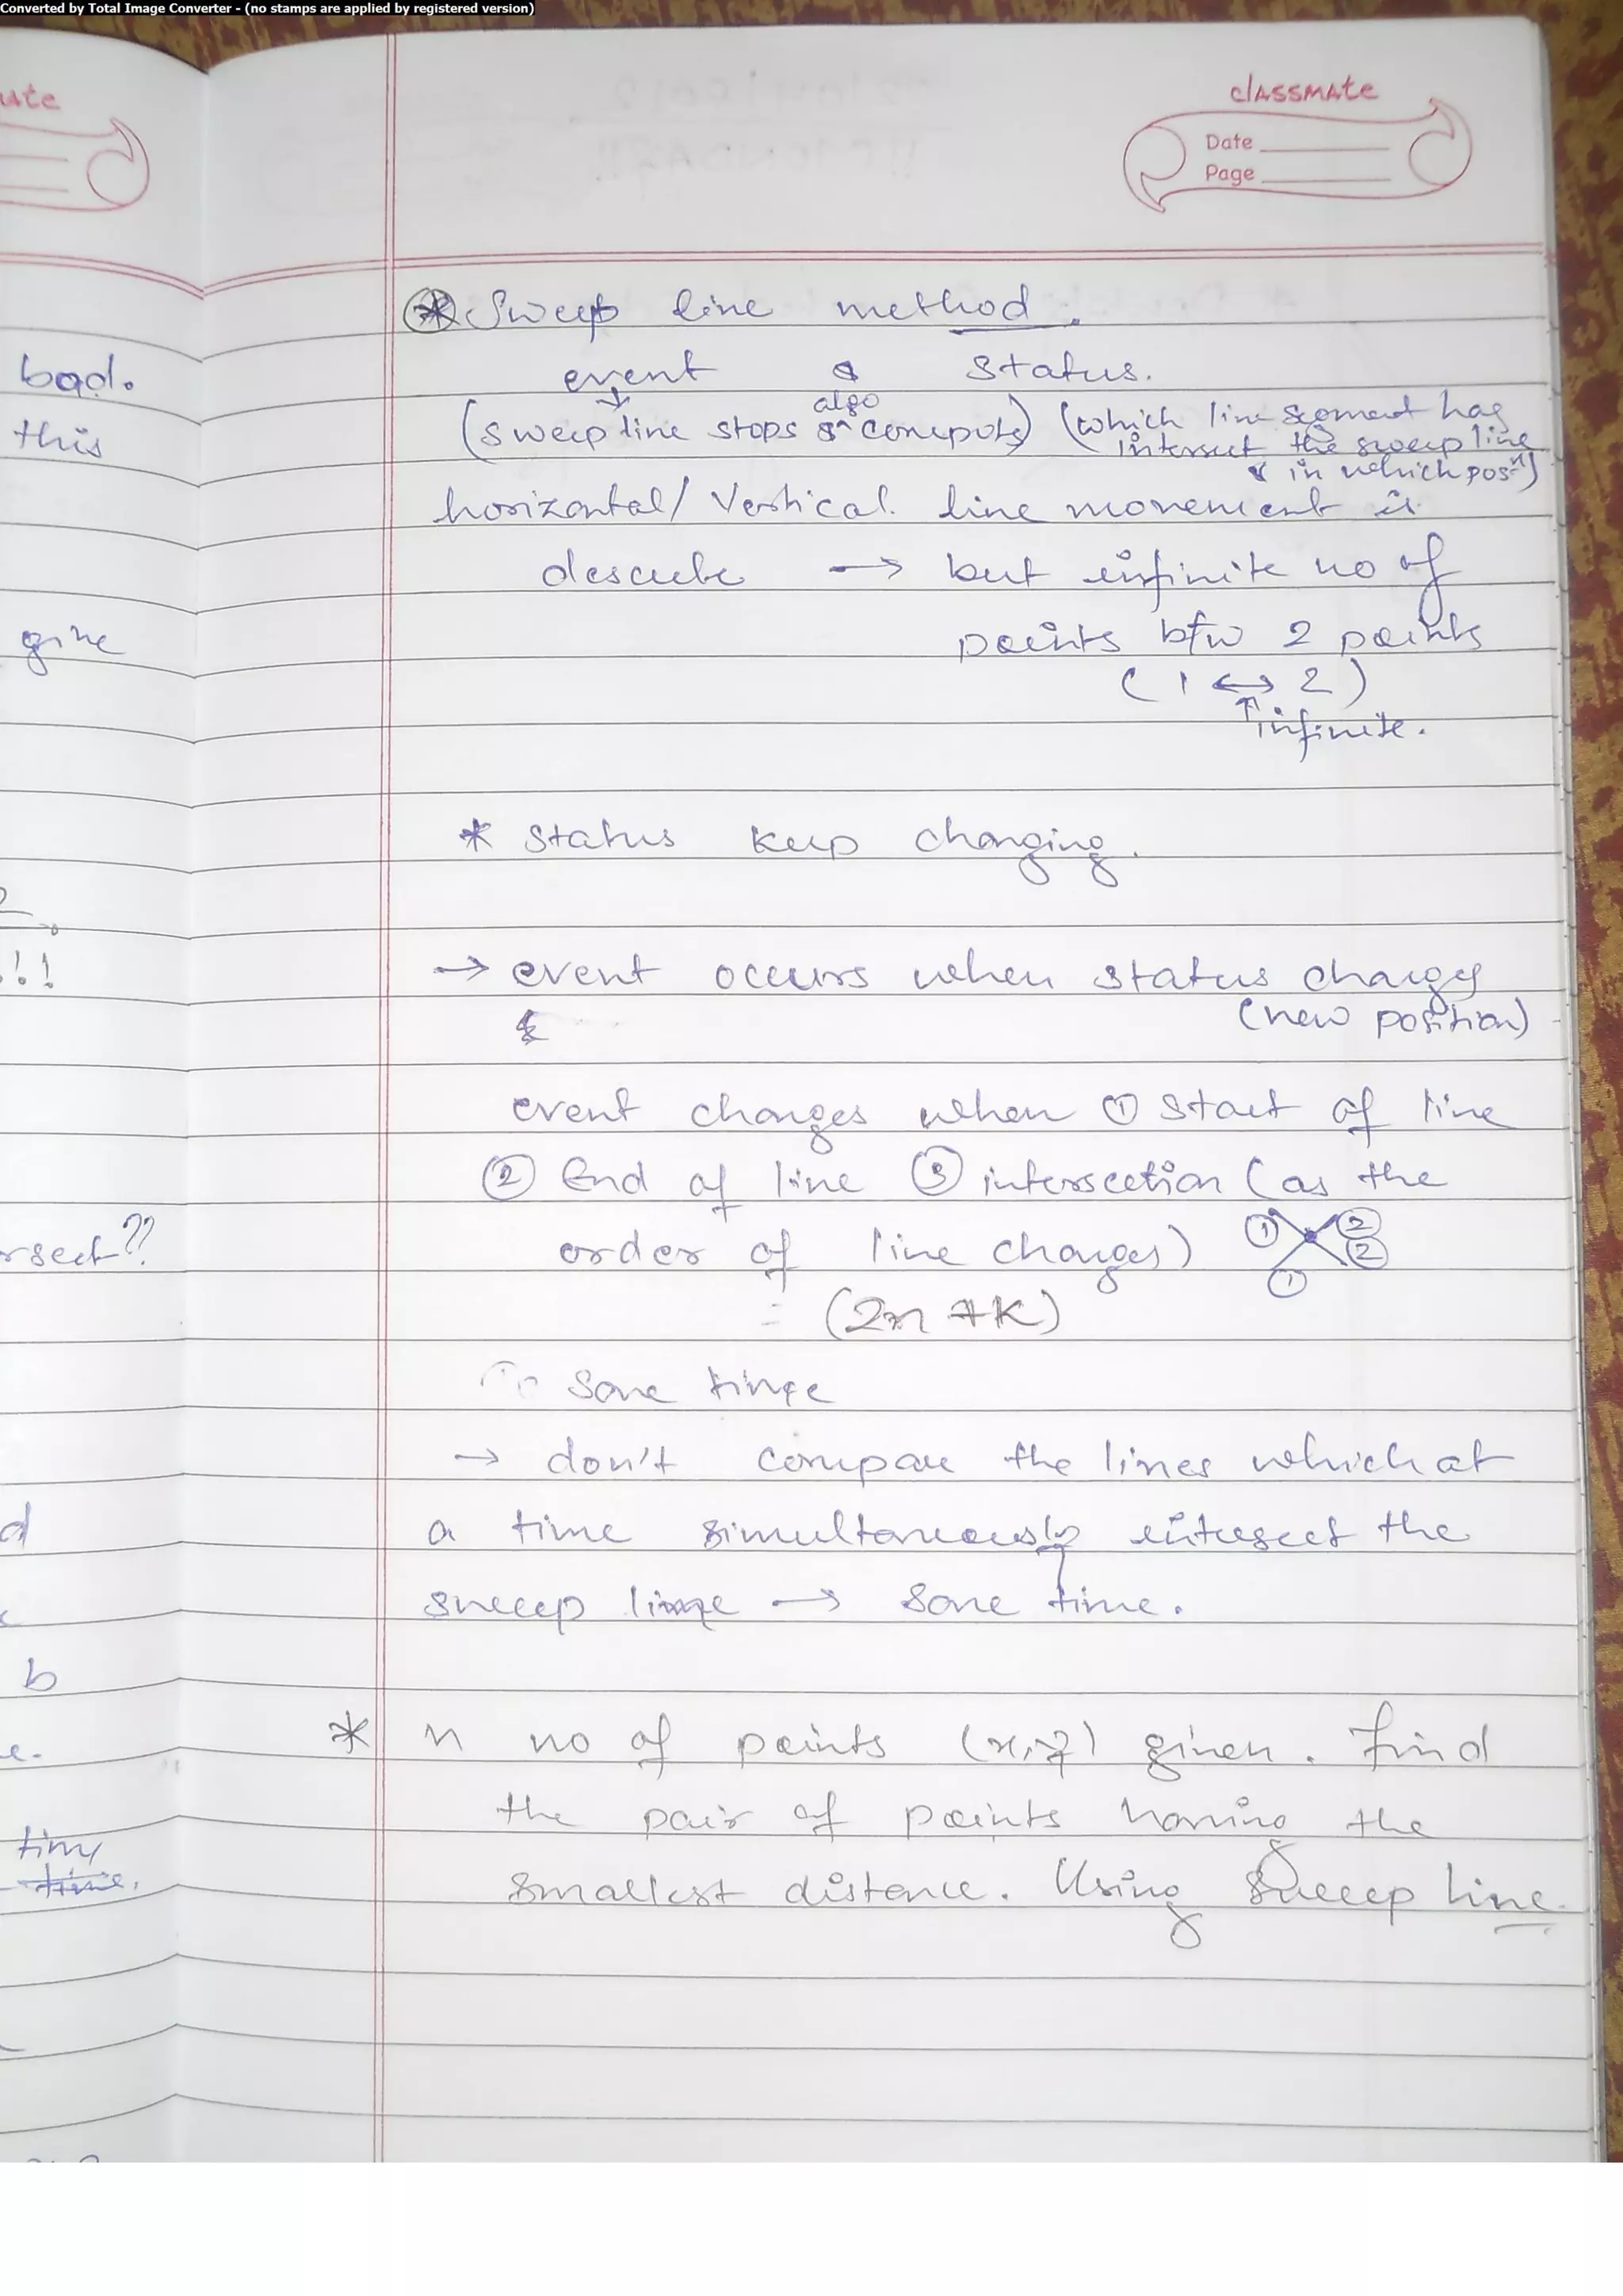 Converted by Total Image Converter - (no stamps are applied by registered version)
classmate
Date
Page
* Sweep line method.
event & status.
(sweep line stops & algo computs) (which line segment has
intersect the sweep line
& in which posn)
horizontal/ Vertical. line movement is
describe → but infinite no of
points b/w 2 points
(1 ↔ 2)
↑ infinite.
* Status keep changing.
→ event occurs when status changes
(new position)
event changes when ① start of line
② End of line ③ intersection (as the
order of line changes) ① ② ② ①
= (2n + K)
Save time
→ don't compare the lines which at
a time simultaneously intersect the
sweep line → Save time.
* n no of points (x, y) given. Find
the pair of points having the
smallest distance. Using Sweep line.
ate
bad.
this
give
2
!!!
rsect??
d
b
e.
time
time.